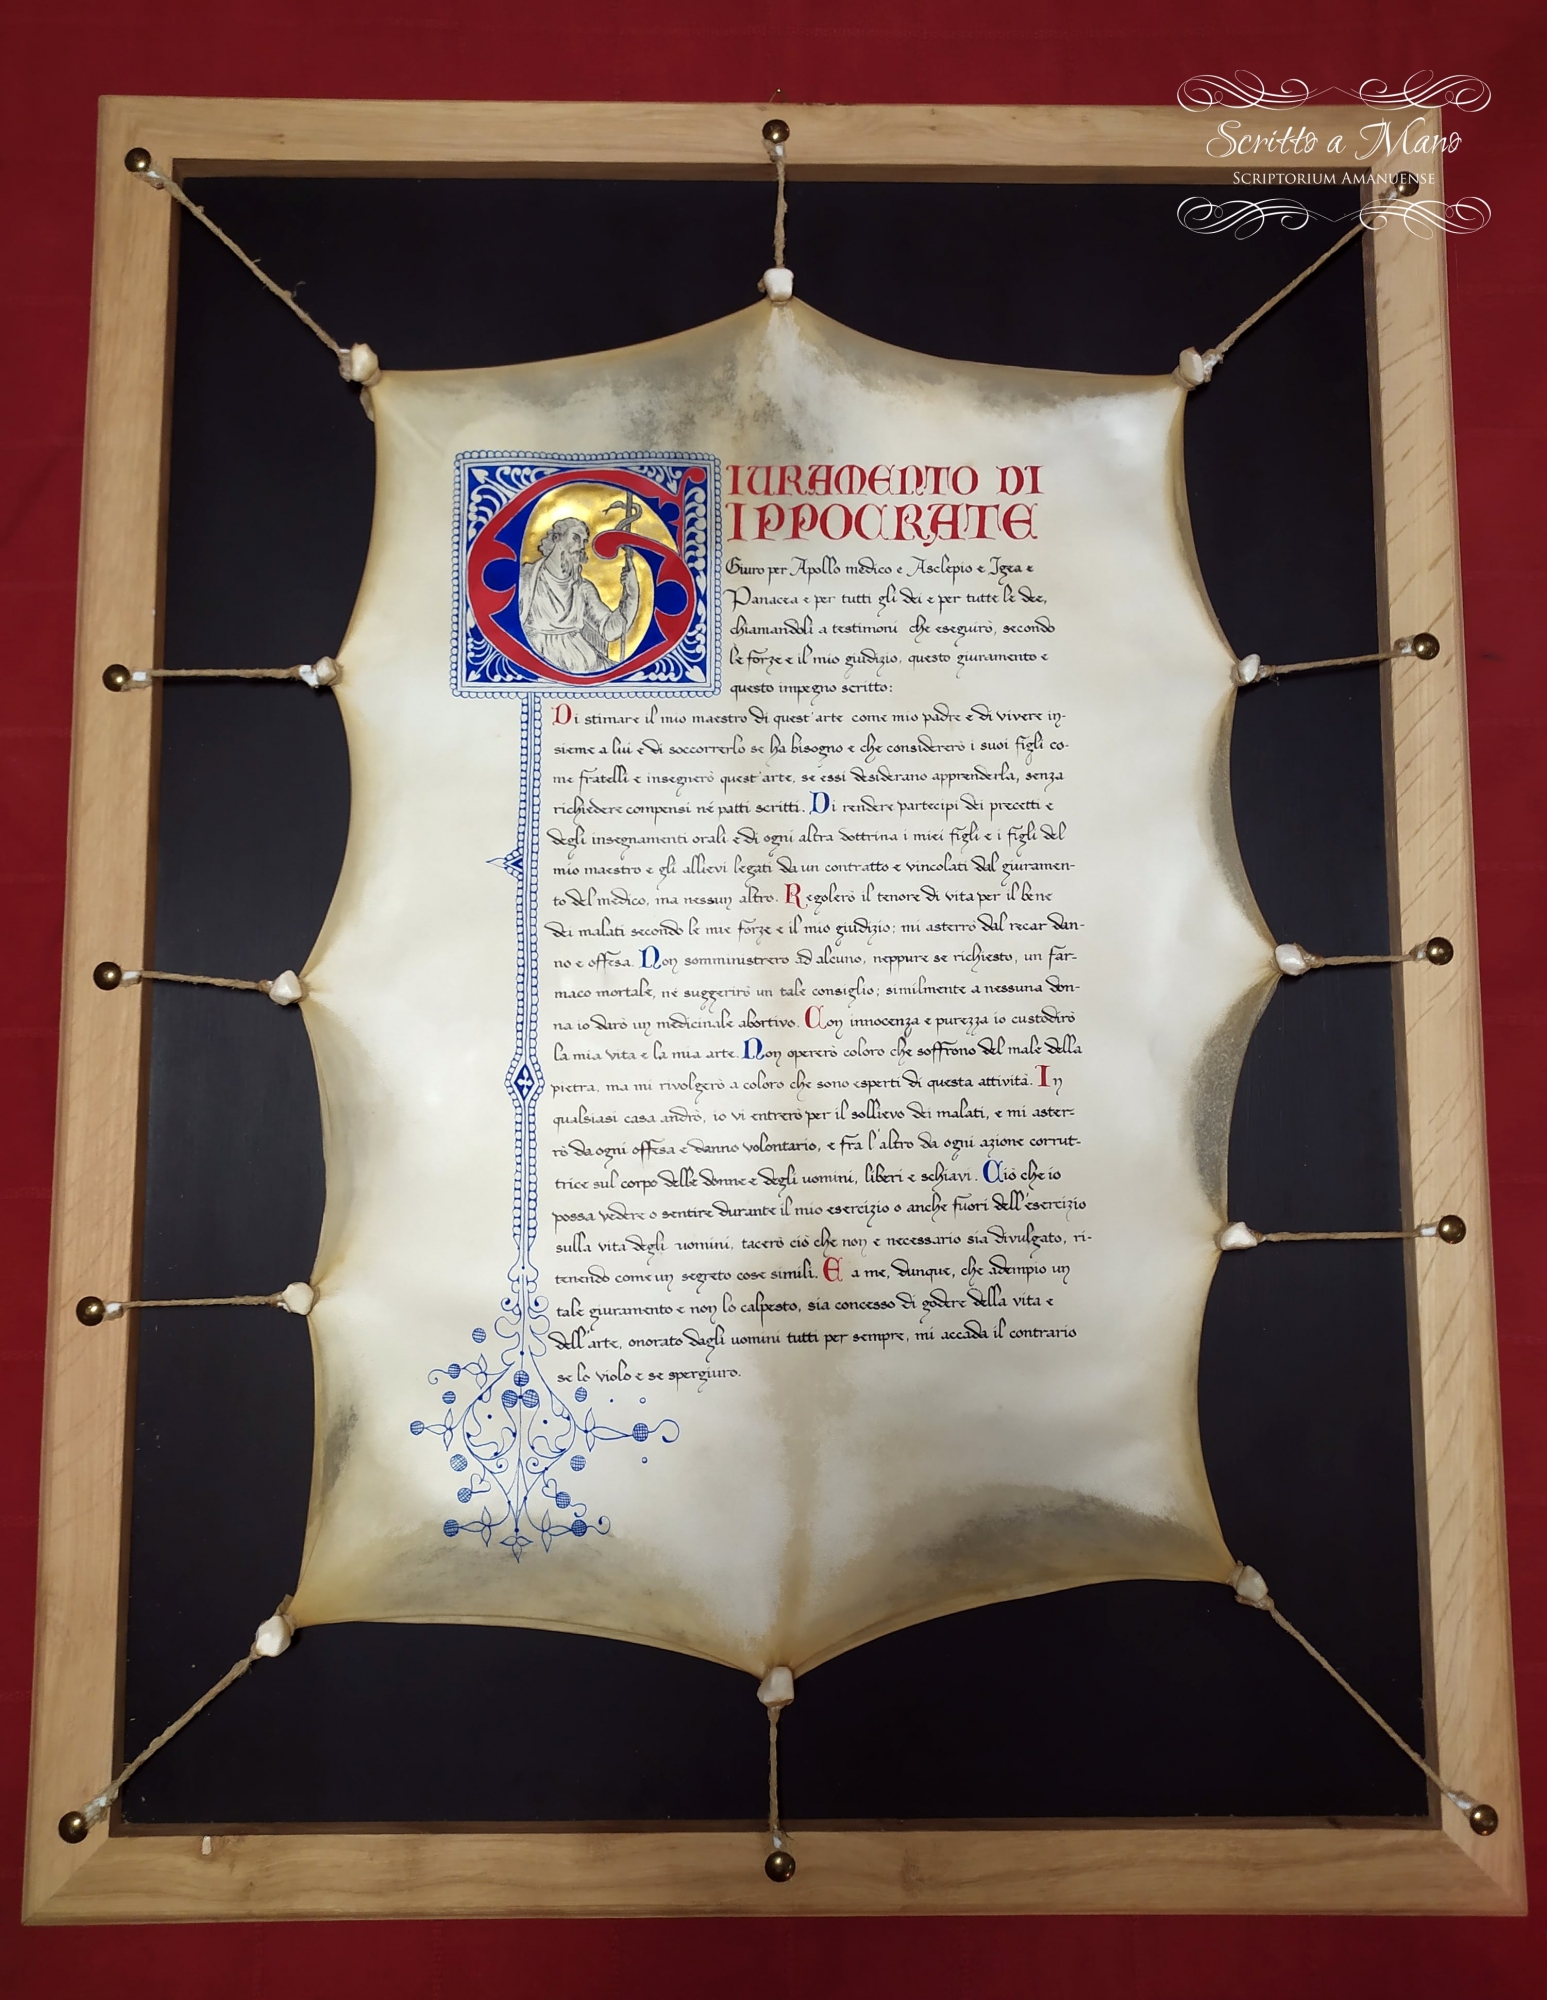 Scritto a Mano
SCRIPTORIUM AMANUENSE
GIURAMENTO DI
IPPOCRATE
Giuro per Apollo medico e Asclepio e Igea e
Panacea e per tutti gli dei e per tutte le dee,
chiamandoli a testimoni che eseguirò, secondo
le forze e il mio giudizio, questo giuramento e
questo impegno scritto:
Di stimare il mio maestro di quest'arte come mio padre e di vivere in-
sieme a lui e di soccorrerlo se ha bisogno e che considererò i suoi figli co-
me fratelli e insegnerò quest'arte, se essi desiderano apprenderla, senza
richiedere compensi né patti scritti. Di rendere partecipi dei precetti e
degli insegnamenti orali e di ogni altra dottrina i miei figli e i figli del
mio maestro e gli allievi legati da un contratto e vincolati dal giuramen-
to del medico, ma nessun altro. Regolerò il tenore di vita per il bene
dei malati secondo le mie forze e il mio giudizio; mi asterrò dal recar dan-
no e offesa. Non somministrerò ad alcuno, neppure se richiesto, un far-
maco mortale, né suggerirò un tale consiglio; similmente a nessuna don-
na io darò un medicinale abortivo. Con innocenza e purezza io custodirò
la mia vita e la mia arte. Non opererò coloro che soffrono del male della
pietra, ma mi rivolgerò a coloro che sono esperti di questa attività. In
qualsiasi casa andrò, io vi entrerò per il sollievo dei malati, e mi aster-
rò da ogni offesa e danno volontario, e fra l'altro da ogni azione corrut-
trice sul corpo delle donne e degli uomini, liberi e schiavi. Ciò che io
possa vedere o sentire durante il mio esercizio o anche fuori dell'esercizio
sulla vita degli uomini, tacerò ciò che non e necessario sia divulgato, ri-
tenendo come un segreto cose simili. E a me, dunque, che adempio un
tale giuramento e non lo calpesto, sia concesso di godere della vita e
dell'arte, onorato dagli uomini tutti per sempre, mi accada il contrario
se lo violo e se spergiuro.